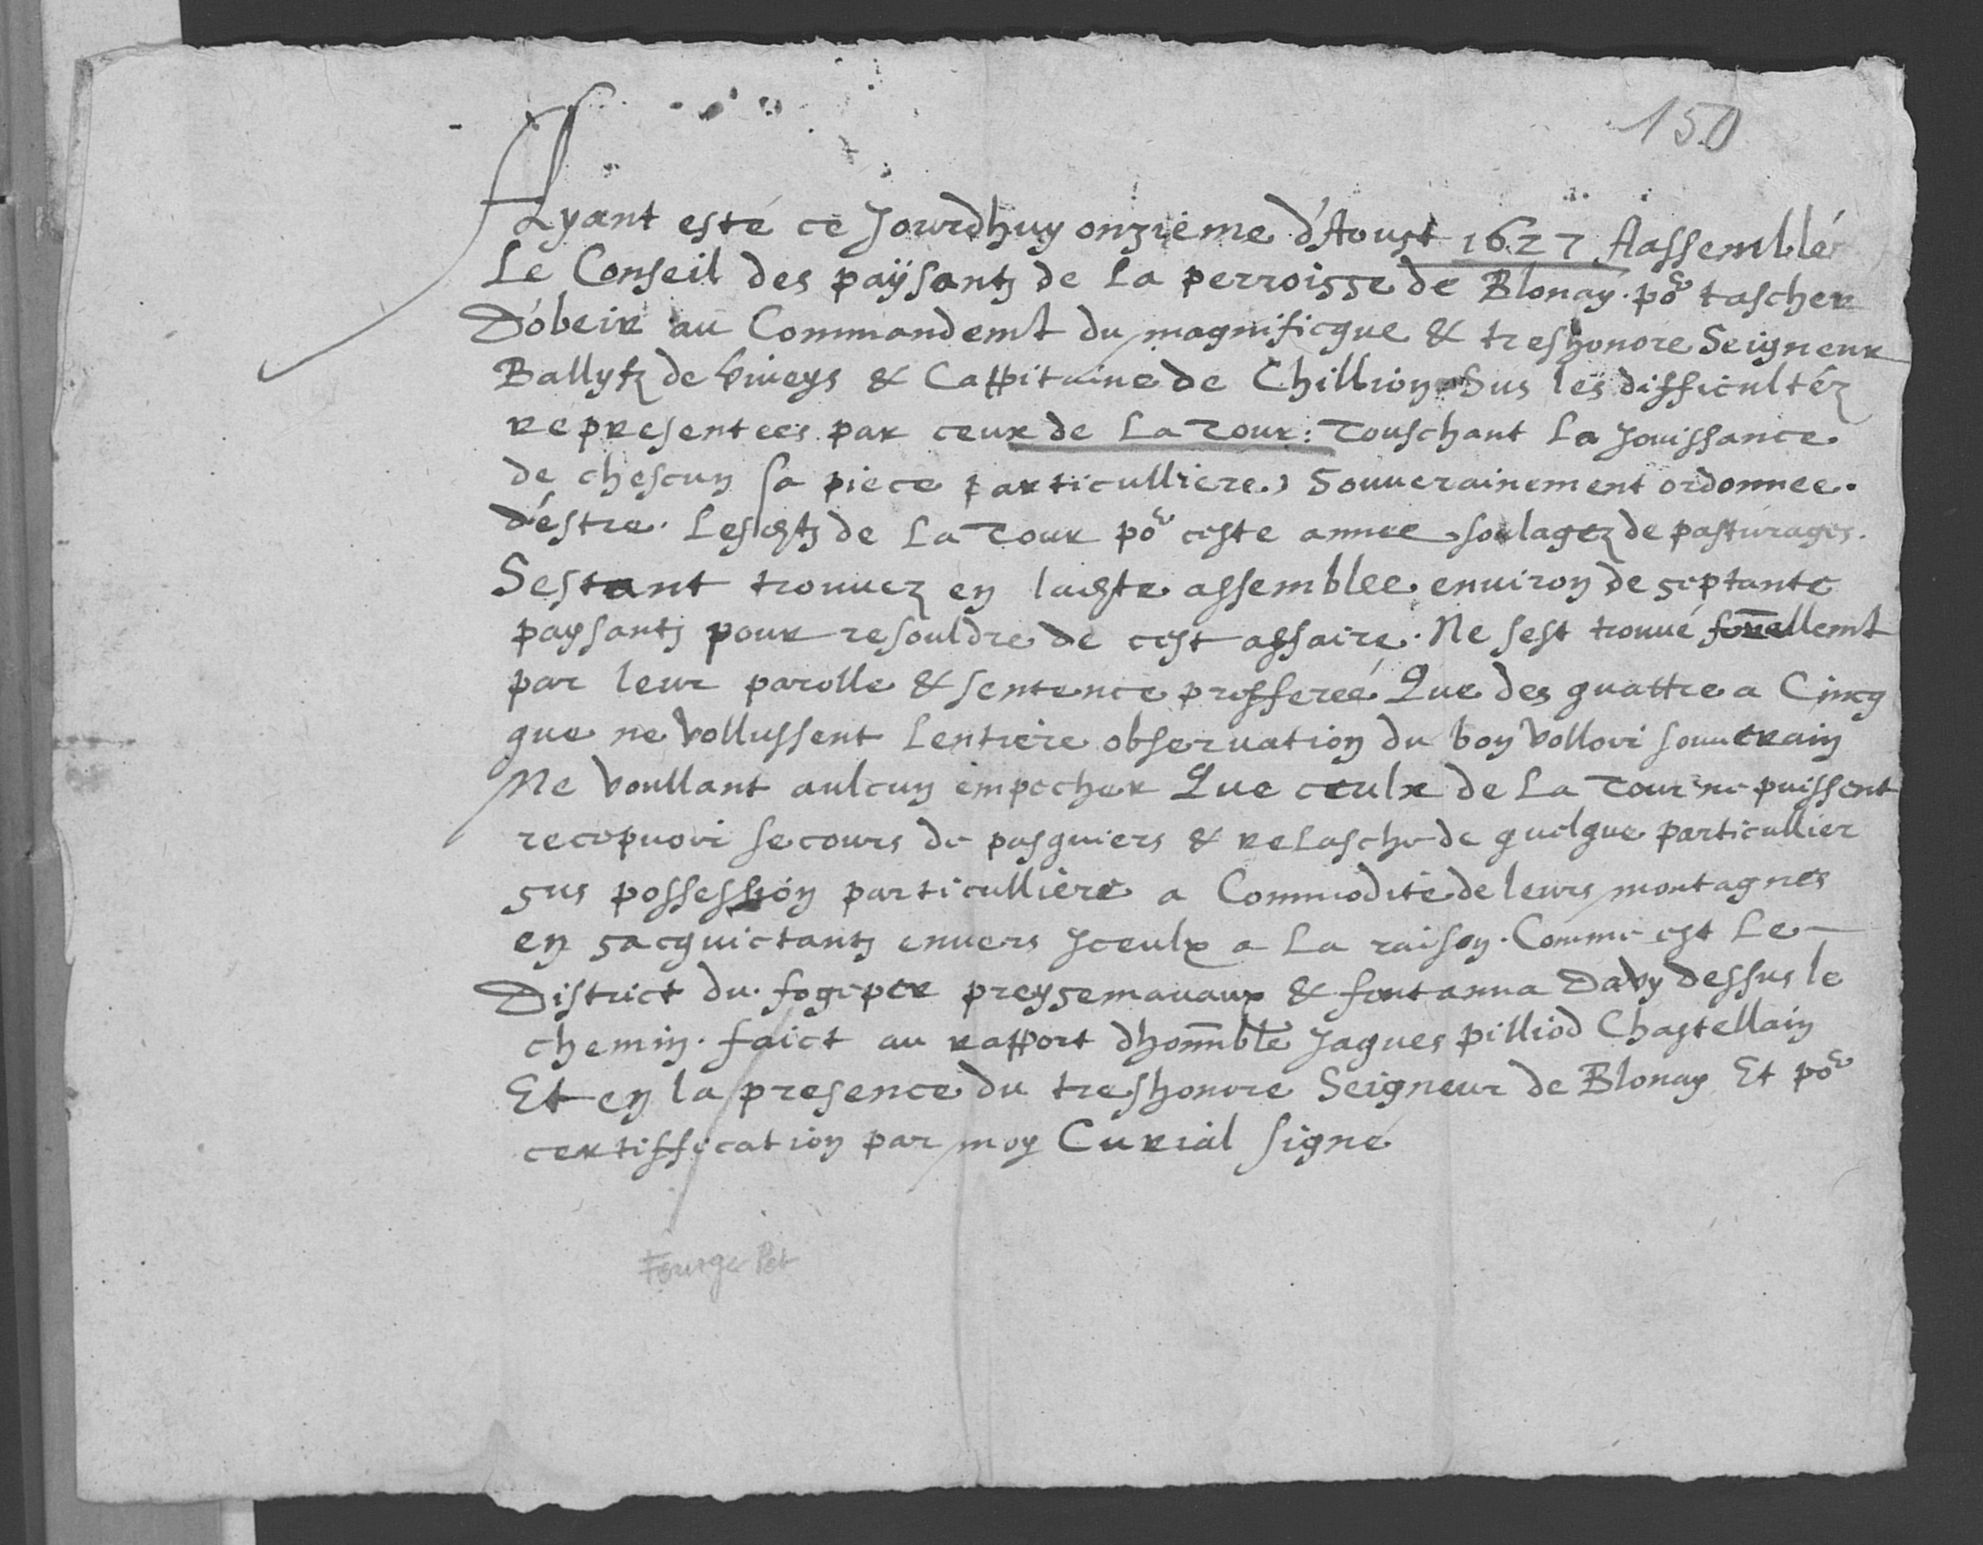 150
Ayant esté ce Jourdhuy onzieme d'Aoust 1627 Assemblé
Le Conseil des paÿsantz de la perroisse de Blonay po^r tascher
D'obeir au Commandemt du magnificque & treshonore Seigneur
Ballyfz de Viveys & Cappitaine de Chillion Sus les difficultéz
representees par ceux de La Tour: Touschant La Jouissance
de chescun sa piece particulliere, Souverainement ordonnee.
d'éstre. Lesdtz de La Tour po^r ceste annee soulagez de pasturages.
Sestant trouvez en ladte assemblee environ de septante
paysantz pour resouldre de cest affaire. Ne sest trouvé formellemt
par leur parolle & sentence profferéé Que des quattre a Cincq
que ne vollussent Lentiere observation du bon vollovi souverain
Ne voullant aulcun empecher Que ceulx de La Tour ne puissent
recepvoir secours de pasquiers & relasche de quelque particullier
sus possession particulliere a Commodité de leurs montagnes
en sacquictantz envers Jceulx a La raison. Comme est Le
District du fogeper preysemavaux & fontanna Davy dessus le
chemin. faict au rapport dhonnble Jaques pilliod Chastellain
Et en la presence du treshonore Seigneur de Blonay Et po^r
certiffication par moy Curial signé
Fourge Pet